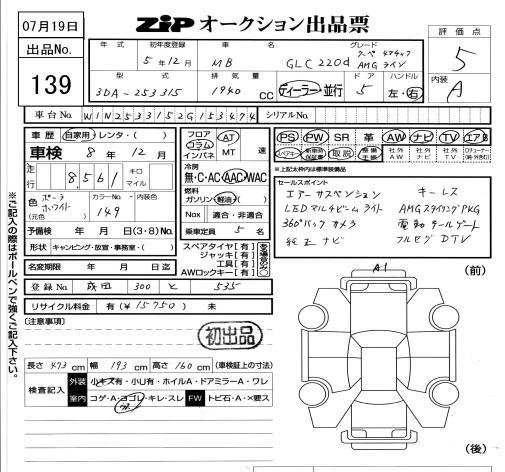 07月19日
ZIP オークション出品票
出品No.
139
評価点
5
内装
A
年式 初年度登録 車名 グレード
5年12月 MB GLC 220d クーペ 4マチック
AMG ライン
型式 排気量 ドア ハンドル
3DA-253315 1940 CC ディーラー・並行 5 左・右
車台No. W1N2533152G153474 シリアルNo.
車歴 自家用・レンタ・( )
車検 8年12月
走行 8,561 キロ マイル
色 (元色) ポーラーホワイト カラーNo. 149 内装色
予備検 年 月 日(3・8)No.
形状 キャンピング・放宣・事務室・( )
名変期限 年 月 日迄
フロア コラム インパネ AT MT 速
冷房
無・C・AC・AAC・WAC
燃料
ガソリン・軽油・( )
Nox 適合・非適合
乗車定員 5 名
スペアタイヤ[有]
ジャッキ[有]
工具[有]
AWロックキー[有]
PS PW SR 革 AW ナビ TV エアB
スペアキー 新車時保証書 取説 整備手帳 社外AW 社外ナビ 社外TV Dチューナー(純・外割引)
*上記太枠内は標準装備品
セールスポイント
エアーサスペンション キーレス
LEDマルチビームライト AMGスタイリングPKG
360°バックカメラ 電動テールゲート
純正ナビ フルセグDTV
登録No. 成田 300 と 535
リサイクル料金 有(¥15750) 未
[注意事項]
初出品
長さ 473 cm 幅 193 cm 高さ 160 cm (車検証上の寸法)
検査記入 外装 小キズ有・小U有・ホイルA・ドアミラーA・ワレ
室内 コゲ・A・ヨゴレ・キレ・スレ FW トビ石・A・×要ス
A1
(前)
(後)
※ご記入の際はボールペンで強くご記入下さい。